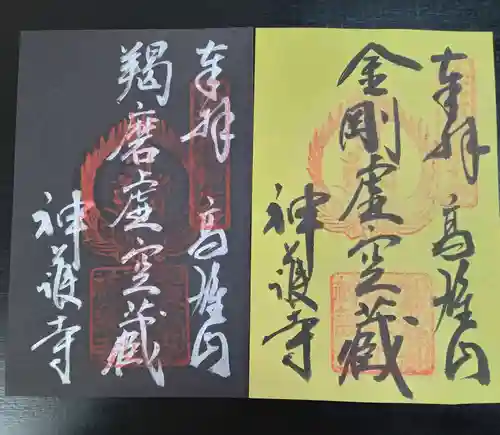 奉拝 高雄山
金剛虚空蔵
神護寺
奉拝 高雄山
羯磨虚空蔵
神護寺